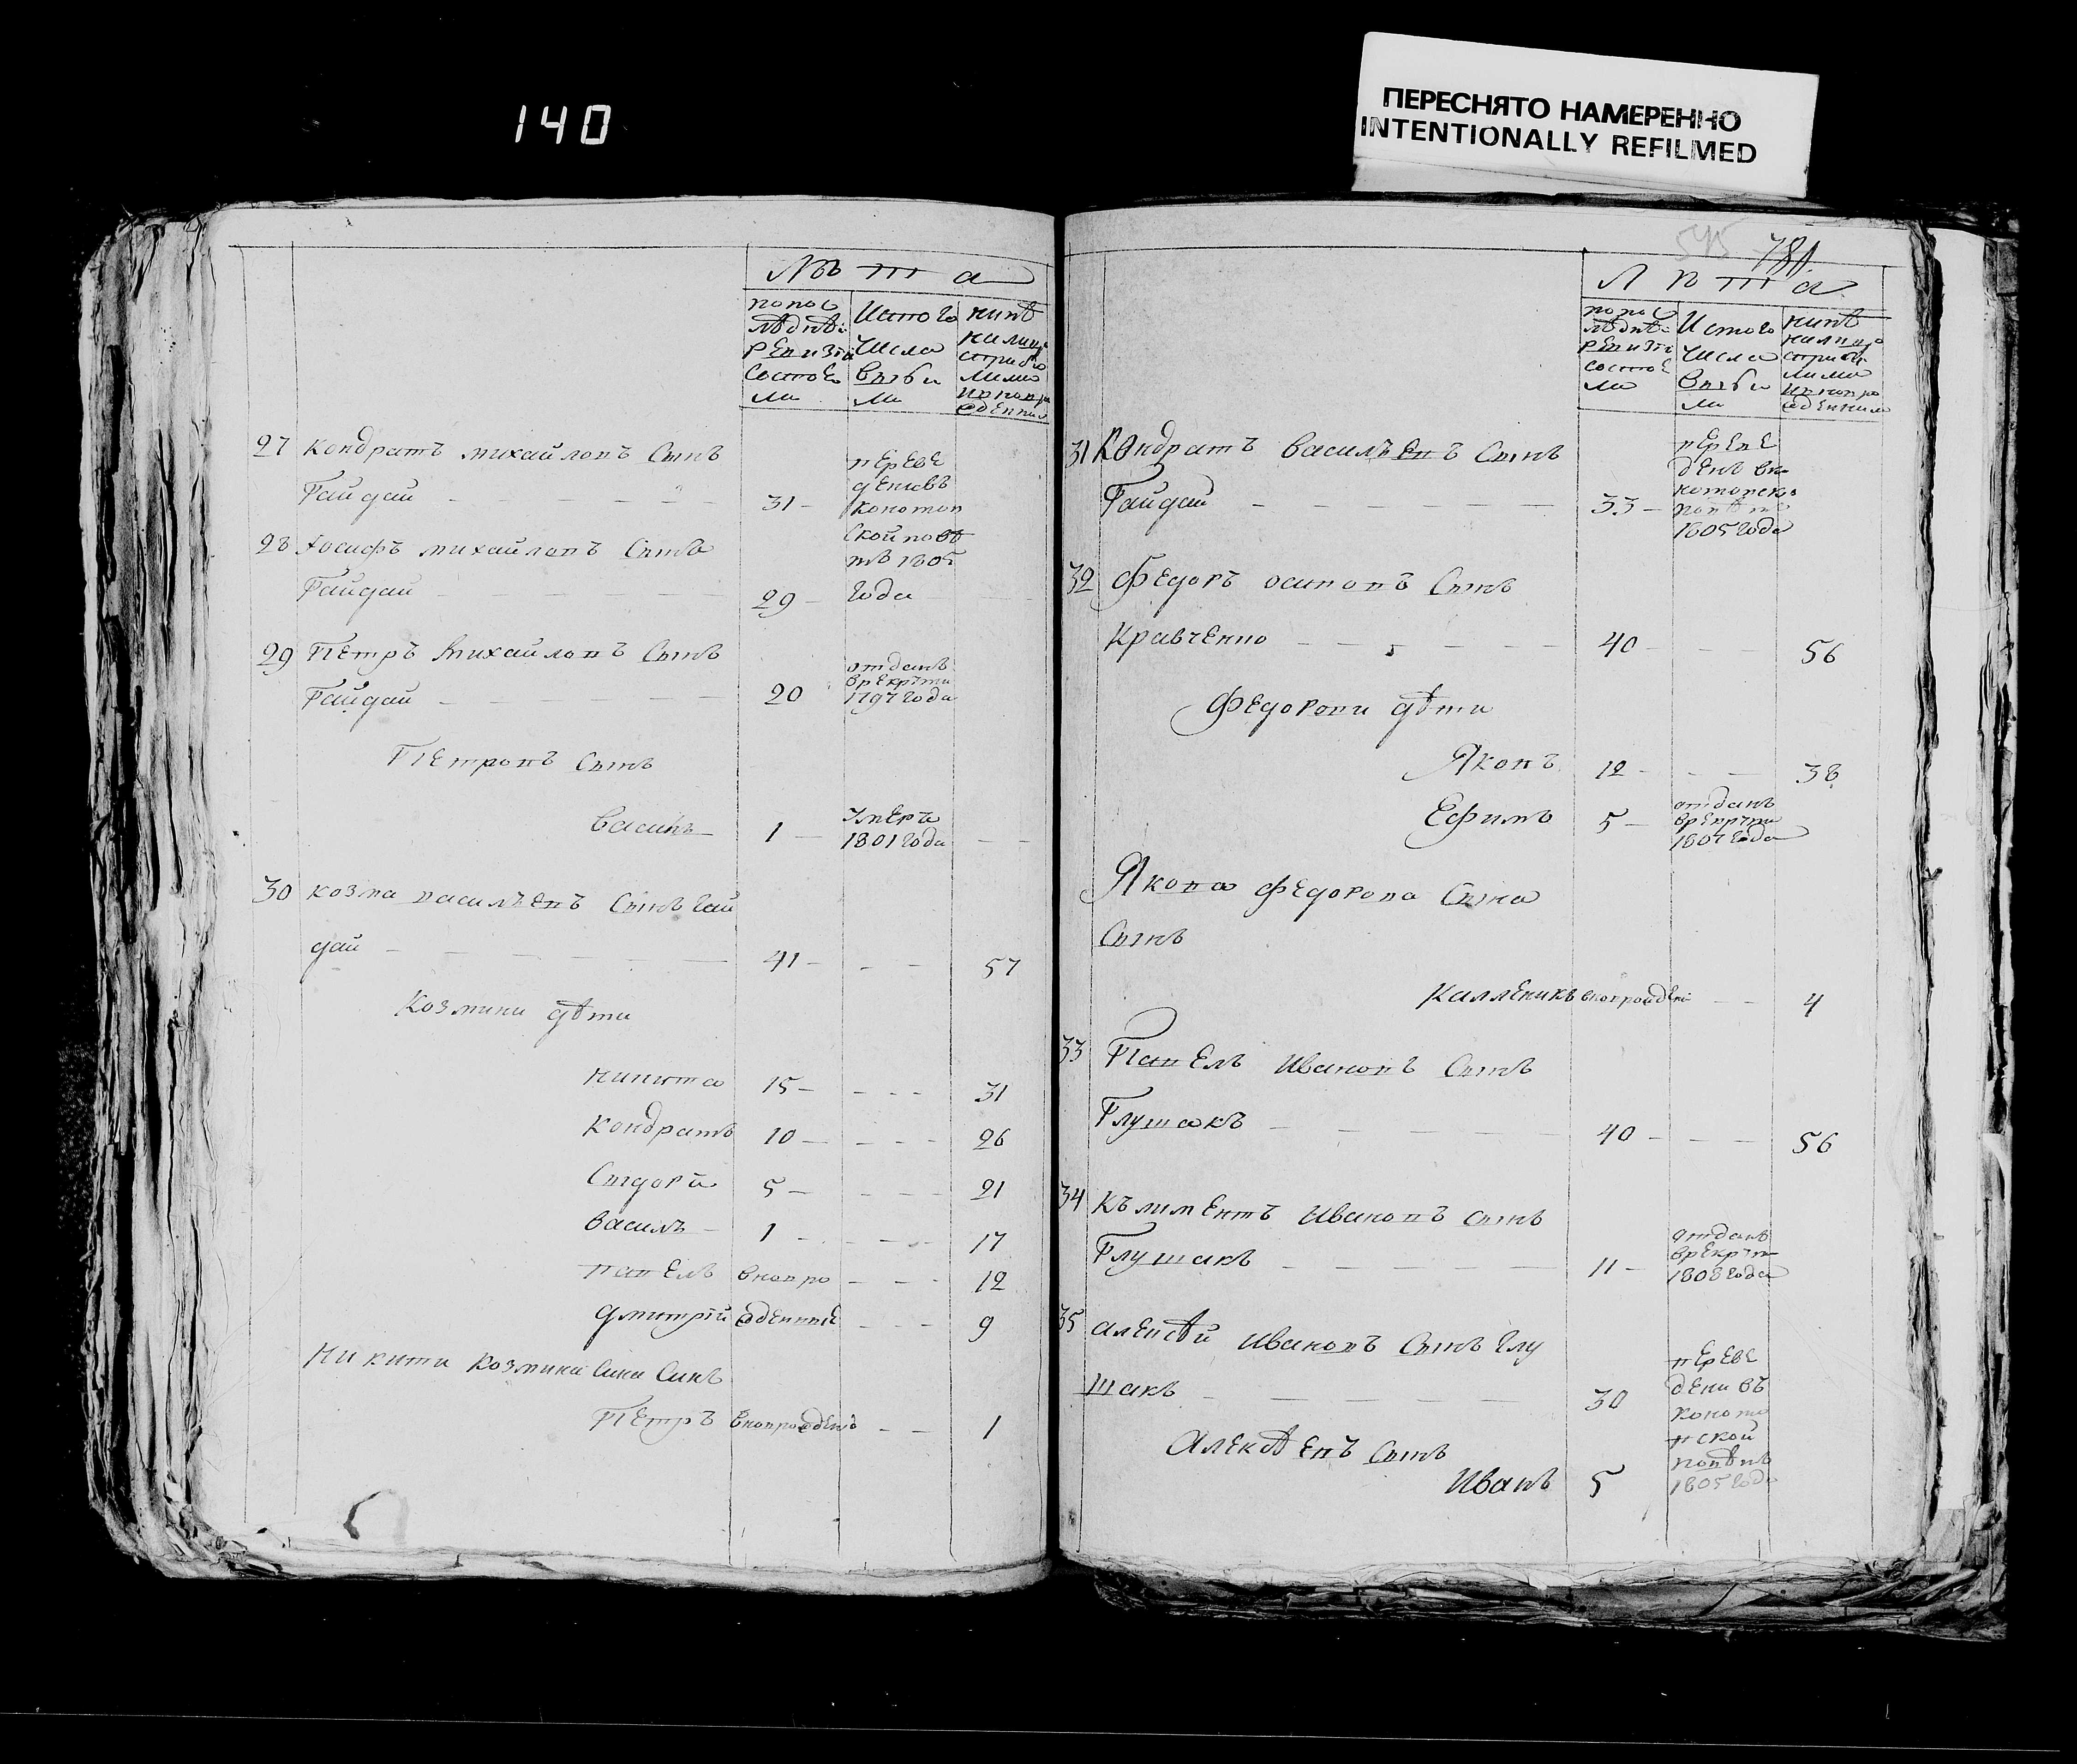 140
ПЕРЕСНЯТО НАМЕРЕННО
INTENTIONALLY REFILMED
Лѣта
попос
лѣднѣ:
ревизіи
состоя
ли
Истого
числа
выбы
ли
нинѣ
налицо
27 Кондратъ михайловъ Сынъ
Гайдай 31
переве
денивъ
Конотоп
ской повѣ
тъ 1805
года
28 Іосифъ михайловъ Сынъ
Гайдай 29
29 Петръ михайловъ Сынъ
Гайдай 20
отданъ
врекруты
1797 года
Петровъ Сынъ
Василь 1
Умеръ
1801 года
30 козма василъевъ Сынъ Гай
дай 41 57
Козмини дѣти
Никита 15 31
Кондратъ 10 26
Сыдоръ 5 21
Василъ 1 17
павелъ вновро 12
Дмитрій жденние 9
Никити Козмина Сина Синъ
Петръ вноврожденъ 1
545 781
Лѣта
попос
лѣднѣ:
ревизіи
состоя
ли
Истого
числа
выбы
ли
нинѣ
налицо
31 Кондратъ Василъевъ Сынъ
Гайдай 33
переве
денъ вко
нотопско
повѣтъ
1805 года
32 Федоръ осиповъ Сынъ
Кравченко 40 56
Федорови дѣти
Яковъ 12 38
Ефимъ 5
отданъ
врекруты
1807 года
Якова Федорова Сына
Сынъ
Калленикъ вноврожден 4
33 Павелъ Ивановъ Сынъ
Глушакъ 40 56
34 Кълиментъ Ивановъ сынъ
Глушакъ 11
отданъ
врекрут
1808 года
35 алексѣй Ивановъ Сынъ Глу
шакъ 30
переве
дени въ
коното
пской
повѣтъ
1805 года
Алексѣевъ Сынъ
Иванъ 5